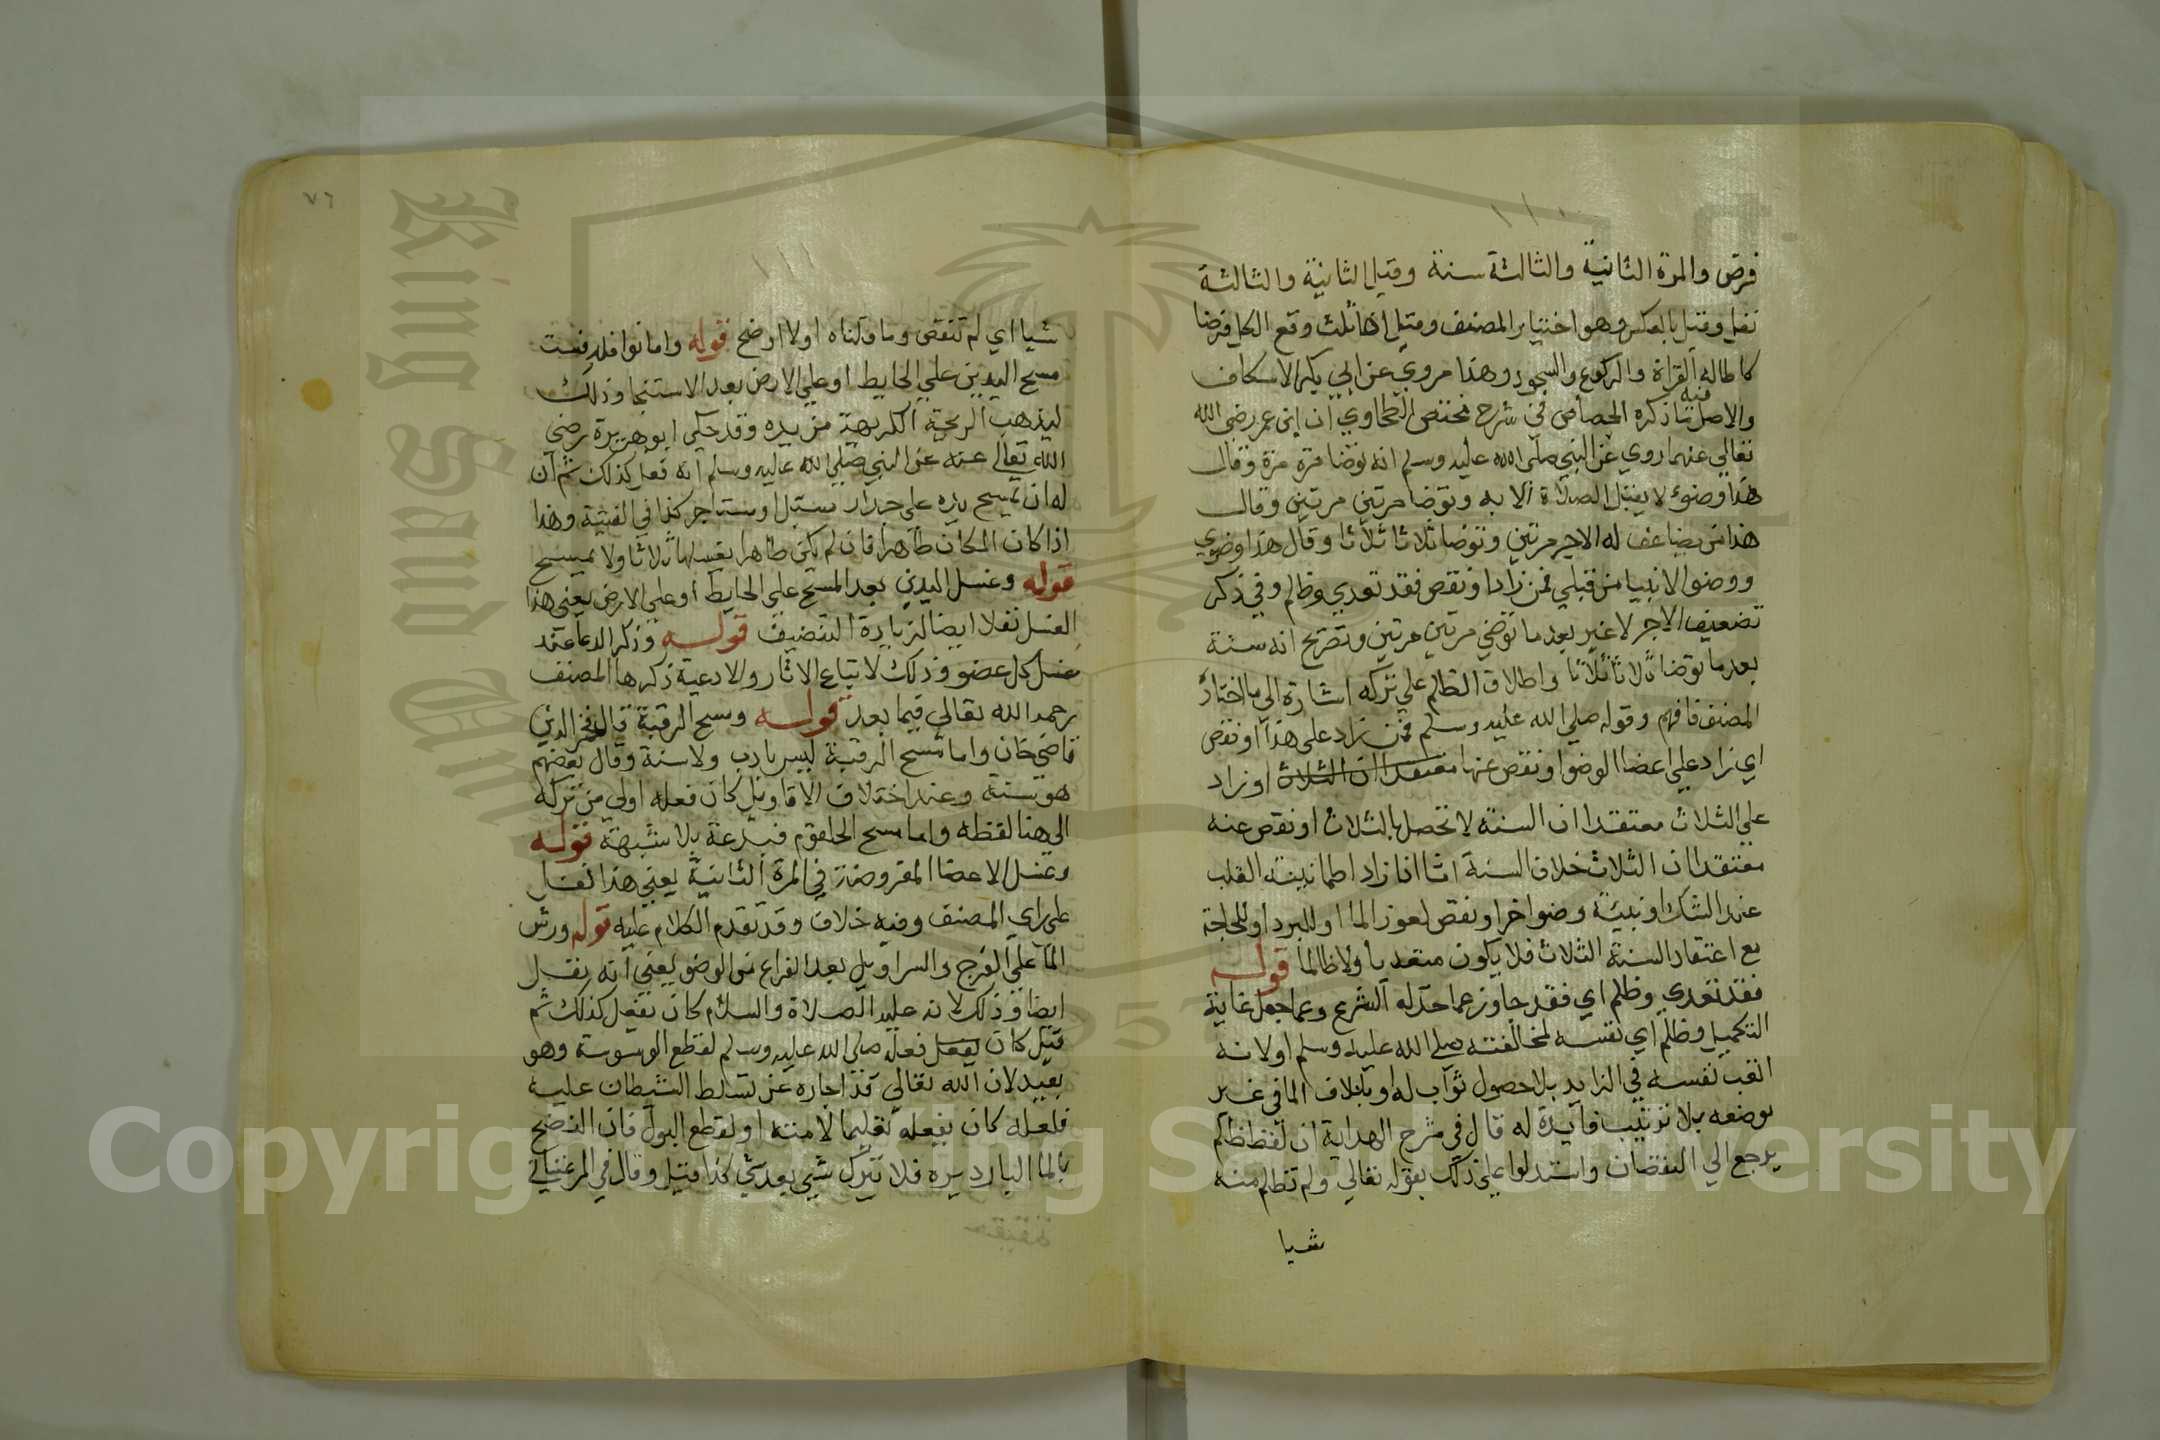 فرض والمرة الثانية والثالثة سنة وقيل الثانية والثالثة
نفل وقيل بالعكس وهو اختيار المصنف وقيل اذا ثلث وقع الكل فرضا
كاطالة القراة والركوع والسجود وهذا مروي عن ابي بكر الاسكاف
والاصل فيه ما ذكره الجصاص في شرح مختصر الطحاوي ان ابن عمر رضي الله
تعالي عنهما روي عن النبي صلي الله عليه وسلم انه توضا مرة مرة وقال
هذا وضوء لا يقبل الصلاة الا به وتوضا مرتين مرتين وقال
هذا من يضاعف له الاجر مرتين وتوضا ثلاثا ثلاثا وقال هذا وضوي
ووضوا الانبيا من قبلي فمن زاد او نقص فقد تعدي وظلم وفي ذكر
تضعيف الاجر لا غير بعد ما توضي مرتين مرتين وتصريح انه سنة
بعد ما توضا ثلاثا ثلاثا واطلاق الظلم علي تركه اشارة الي ما اختاره
المصنف فافهم وقوله صلي الله عليه وسلم فمن زاد علي هذا او نقص
اي زاد علي اعضا الوضوا او نقص عنها معتقدا ان الثلاث او زاد
علي الثلاث معتقدا ان السنة لا تحصل بالثلاث او نقص عنه
معتقدا ان الثلاث خلاف السنة اما اذا زاد اطمانينة القلب
عند الشك او بنية وضوا خر او نقص لعوز الما او للبرد او للحاجة
مع اعتقاد السنة الثلاث فلا يكون متعديا ولا ظالما قوله
فقد تعدي وظلم اي فقد جاوز عما حد له الشرع وعما جعل غاية
التكميل وظلم اي نفسه لمخالفته صلي الله عليه وسلم او لانه
اتعب نفسه في الزايد بلا حصول ثواب له او باتلاف الما في غير
موضعه بلا ترتيب فايدة له قال في شرح الهداية ان لفظ ظلم
يرجع الي النقصان واستدلوا علي ذلك بقوله تعالي ولم تظلم منه
شيا
٧٦
شيا اي لم تنقص وما قلناه اولا اوضح قوله واما نوافله فست
مسح اليدين علي الحايط او علي الارض بعد الاستنجا وذلك
ليذهب الريحة الكريهة من يده وقد حكي ابو هريرة رضي
الله تعالي عنه عن النبي صلي الله عليه وسلم انه فعل كذلك ثم ان
له ان يمسح يده علي جدار مسبل او مستاجر كذا في القنية وهذا
اذا كان المكان طاهرا فان لم يكن طاهرا يغسلها ثلاثا ولا يمسح
قوله وغسل اليدين بعد المسح علي الحايط او علي الارض يعني هذا
الغسل نفلا ايضا لزيادة التنضيف قوله وذكر الدعا عند
غسل كل عضو وذلك لاتباع الاثار والادعية ذكرها المصنف
رحمه الله تعالي فيما بعد قوله ومسح الرقبة قال فخر الدين
قاضي خان واما مسح الرقبة ليس بادب ولا سنة وقال بعضهم
هو سنة وعند اختلاف الاقاويل كان فعله اولي من تركه
الي هنا لفظه واما مسح الحلقوم فبدعة بلا شبهة قوله
وغسل الاعضا المفروضة في المرة الثانية يعني هذا نفل
علي راي المصنف وفيه خلاف وقد تقدم الكلام عليه قوله ورش
الما علي الفرج والسراويل بعد الفراغ من الوضو يعني انه نفل
ايضا وذلك لانه عليه الصلاة والسلام كان يفعل كذلك ثم
قيل كان يفعل فعله صلي الله عليه وسلم لقطع الوسوسة وهو
بعيد لان الله تعالي قد اجاره عن تسلط الشيطان عليه
فلعله كان يفعله تعليما لامته او لقطع البول فان النضح
بالما البارد يرده فلا يترك شي بعد شي كذا قيل وقال في المرغيناني